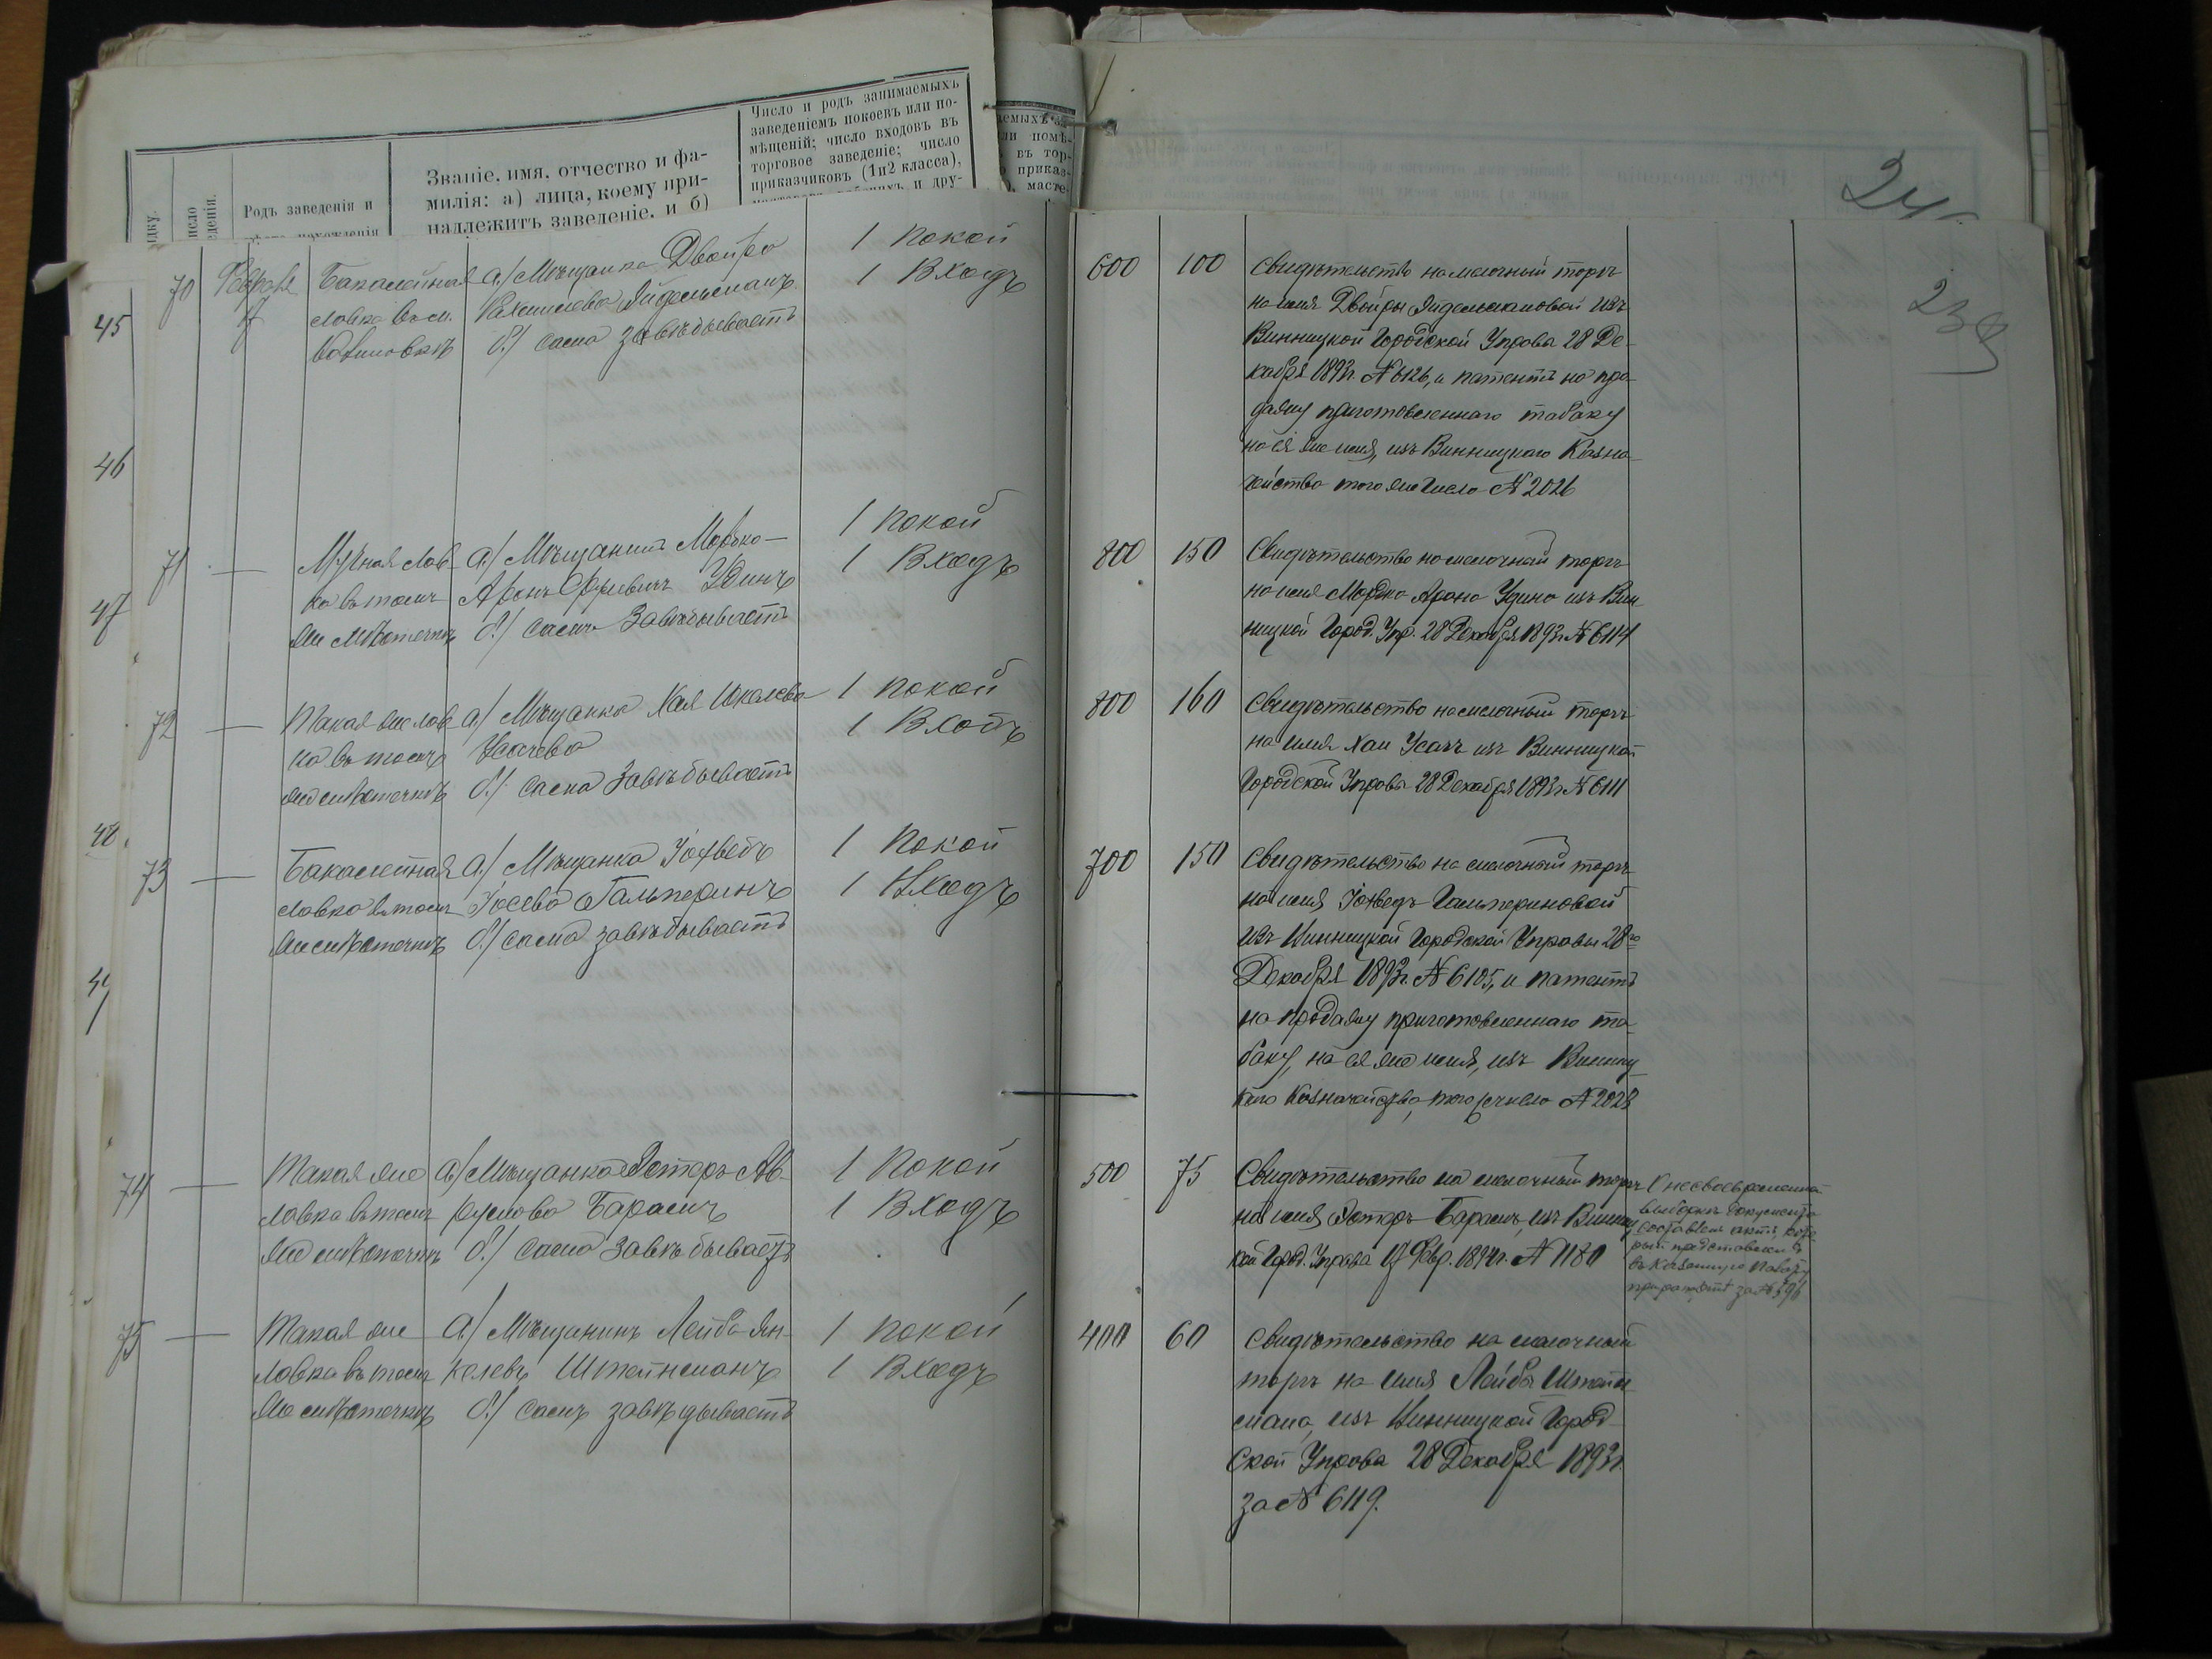 Родъ заведенія и
Званіе, имя, отчество и фа-
милія: а) лица, коему при-
надлежитъ заведеніе, и б)
Число и родъ занимаемыхъ
заведеніемъ покоевъ или по-
мѣщеній; число входовъ въ
торговое заведеніе; число
приказчиковъ (1и2 класса),
и дру-
24
23
45
46
47
48
49
70 Февраля
17
Бакалейная
лавка въ м.
а) Мѣщанка Двойра
Айдельманъ
б) сама завѣдываетъ
1 покой
1 Входъ
600 100
Свидѣтельство на мелочный торгъ
на имя Двойры Айдельмановой изъ
Винницкой Городской Управы 28 Де-
кабря 1893г. № 6126, и патентъ на про-
дажу приготовленнаго табаку
на ея же имя, изъ Винницкаго Казна-
чейства того же числа № 2026
71 —
Мучная лав-
ка въ томъ
же мѣстечкѣ
а) Мѣщанинъ Мордко-
Аронъ Удинъ
б) самъ Завѣдываетъ
1 покой
1 Входъ
800 150
Свидѣтельство на мелочный торгъ
на имя Мордка Арона Удина изъ Вин-
ницкой Город. Упр. 28 Декабря 1893г. № 6114
72 —
Такая же лав-
ка въ томъ
же мѣстечкѣ
а) Мѣщанка Хая
Усачева
б) сама Завѣдываетъ
1 покой
1 Входъ
800 160
Свидѣтельство на мелочный торгъ
на имя Хаи Усачъ изъ Винницкой
Городской Управы 28 Декабря 1893г. № 6111
73 —
Бакалейная
лавка въ томъ
же мѣстечкѣ
а) Мѣщанка Іохведъ
Іосева Гальперинъ
б) сама завѣдываетъ
1 покой
1 Входъ
700 150
Свидѣтельство на мелочный торгъ
на имя Іохведъ Гальпериновой
изъ Винницкой Городской Управы 28го
Декабря 1893г. № 6105, и патентъ
на продажу приготовленнаго та-
баку, на ея же имя, изъ Винниц-
каго Казначейства, того числа № 2028
74 —
Такая же
лавка въ томъ
же мѣстечкѣ
а) Мѣщанка Эстеръ Ав-
румова Барамъ
б) сама завѣдываетъ
1 покой
1 Входъ
500 75
Свидѣтельство на мелочный торгъ
на имя Эстеръ Барамъ, изъ Винниц-
кой Город. Управы 17 Февр. 1894г. № 1180
О несвоевременной
выборкѣ документа
составленъ актъ, кото-
рый представленъ
въ Казенную Палату
при рапортѣ за № 396
75 —
Такая же
лавка въ томъ
же мѣстечкѣ
а) Мѣщанинъ Лейба Ян-
келевъ Штейнманъ
б) самъ завѣдываетъ
1 покой
1 Входъ
400 60
Свидѣтельство на мелочный
торгъ на имя Лейбы Штейн-
мана, изъ Винницкой Город-
ской Управы 28 Декабря 1893г.
за № 6119.